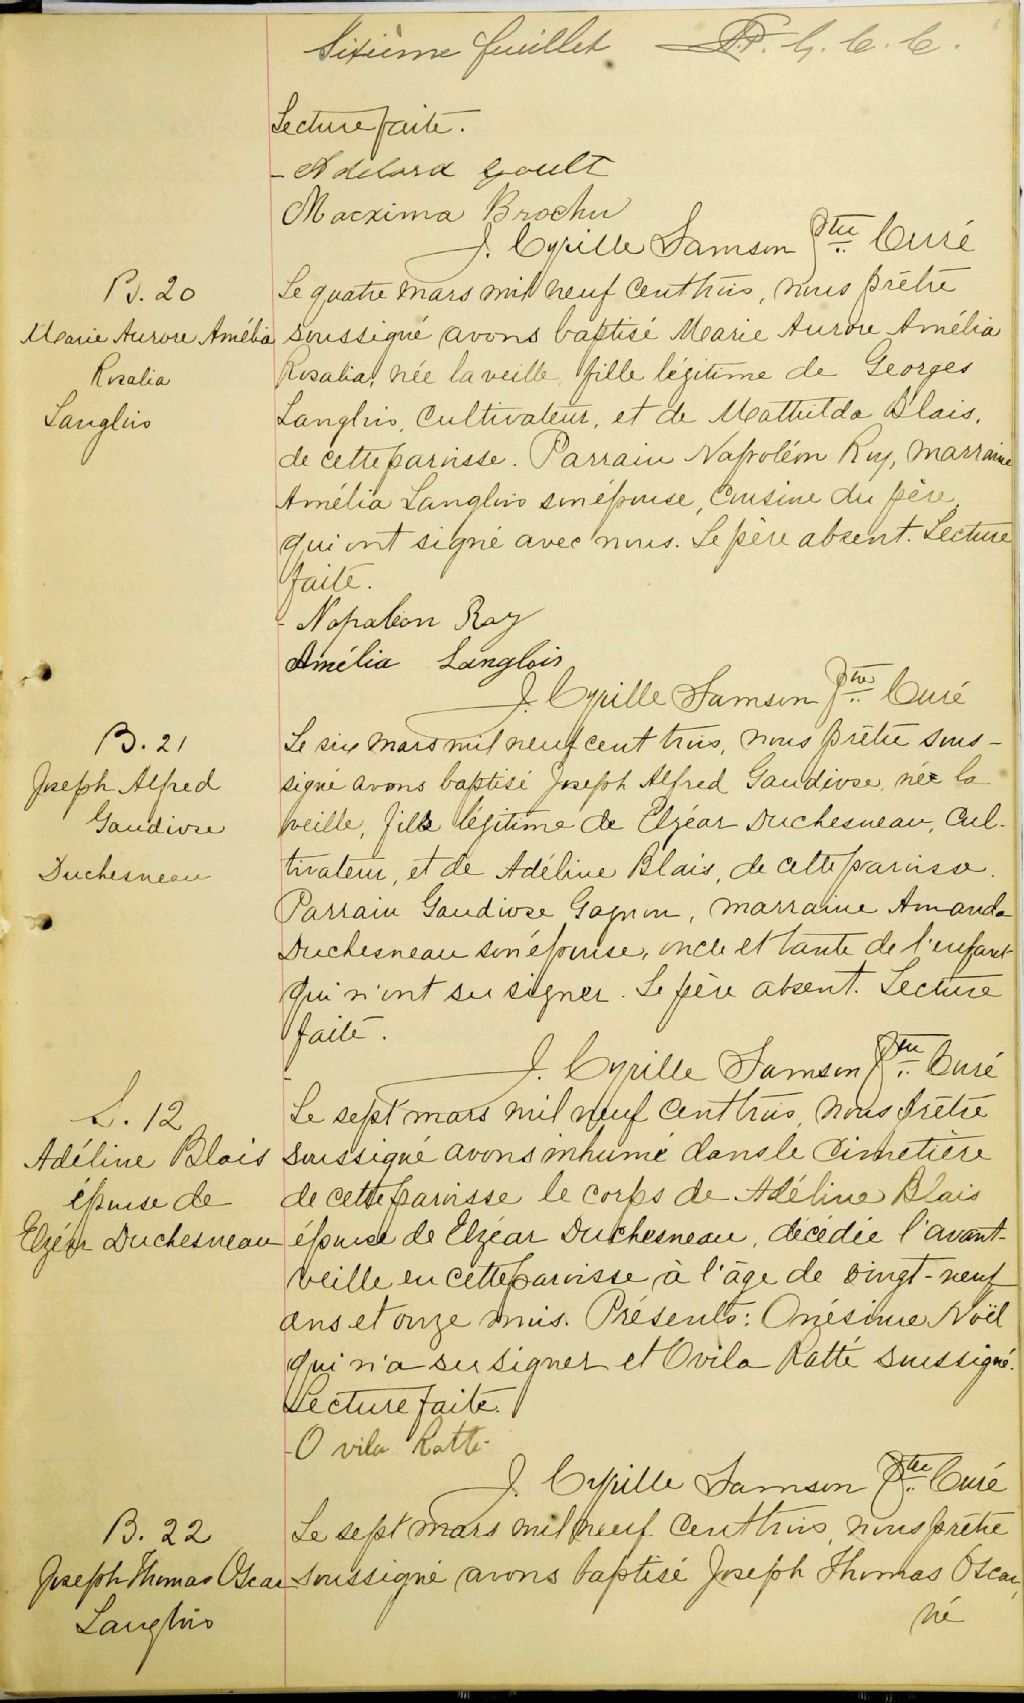 Sixième feuillet P. G. C. C.
Lecture faite.
- Adelard Goult
Macxima Brochu
J. Cyrille Samson Ptre Curé
B. 20
Marie Aurore Amélia
Rosalia
Langlois
Le quatre mars mil neuf cent trois, nous prêtre
soussigné avons baptisé Marie Aurore Amélia
Rosalia, née la veille, fille légitime de Georges
Langlois, cultivateur, et de Mathilda Blais,
de cette paroisse. Parrain Napoléon Roy, marraine
Amélia Langlois son épouse, cousine du père,
qui ont signé avec nous. Le père absent. Lecture
faite.
- Napoleon Roy
Amélia Langlois
J. Cyrille Samson Ptre Curé
B. 21
Joseph Alfred
Gaudiose
Duchesneau
Le six mars mil neuf cent trois, nous prêtre sous-
signé avons baptisé Joseph Alfred Gaudiose, né la
veille, fils légitime de Elzéar Duchesneau, cul-
tivateur, et de Adéline Blais, de cette paroisse.
Parrain Gaudiose Gagnon, marraine Amanda
Duchesneau son épouse, oncle et tante de l'enfant
qui n'ont su signer. Le père absent. Lecture
faite.
J. Cyrille Samson Ptre Curé
S. 12
Adéline Blais
épouse de
Elzéar Duchesneau
Le sept mars mil neuf cent trois, nous prêtre
soussigné avons inhumé dans le cimetière
de cette paroisse le corps de Adéline Blais
épouse de Elzéar Duchesneau, décédée l'avant-
veille en cette paroisse, à l'âge de vingt-neuf
ans et onze mois. Présents: Onésime Noël
qui n'a su signer et Ovila Ratté soussigné.
Lecture faite.
- Ovila Ratté
J. Cyrille Samson Ptre Curé
B. 22
Joseph Thomas Oscar
Langlois
Le sept mars mil neuf cent trois, nous prêtre
soussigné avons baptisé Joseph Thomas Oscar,
né